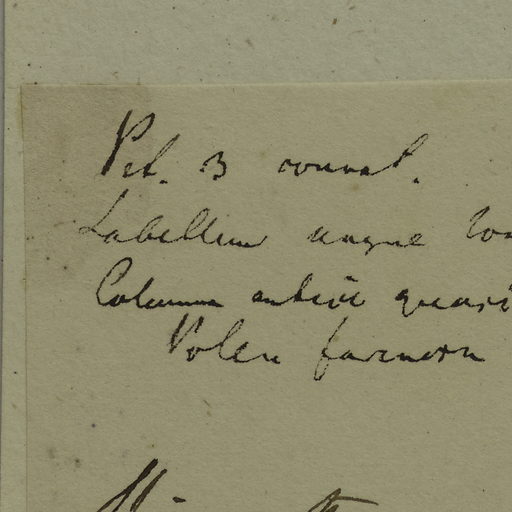 Pet. 3 connat.
Labellum ungue
Columna antice quasi
Polen farinosu